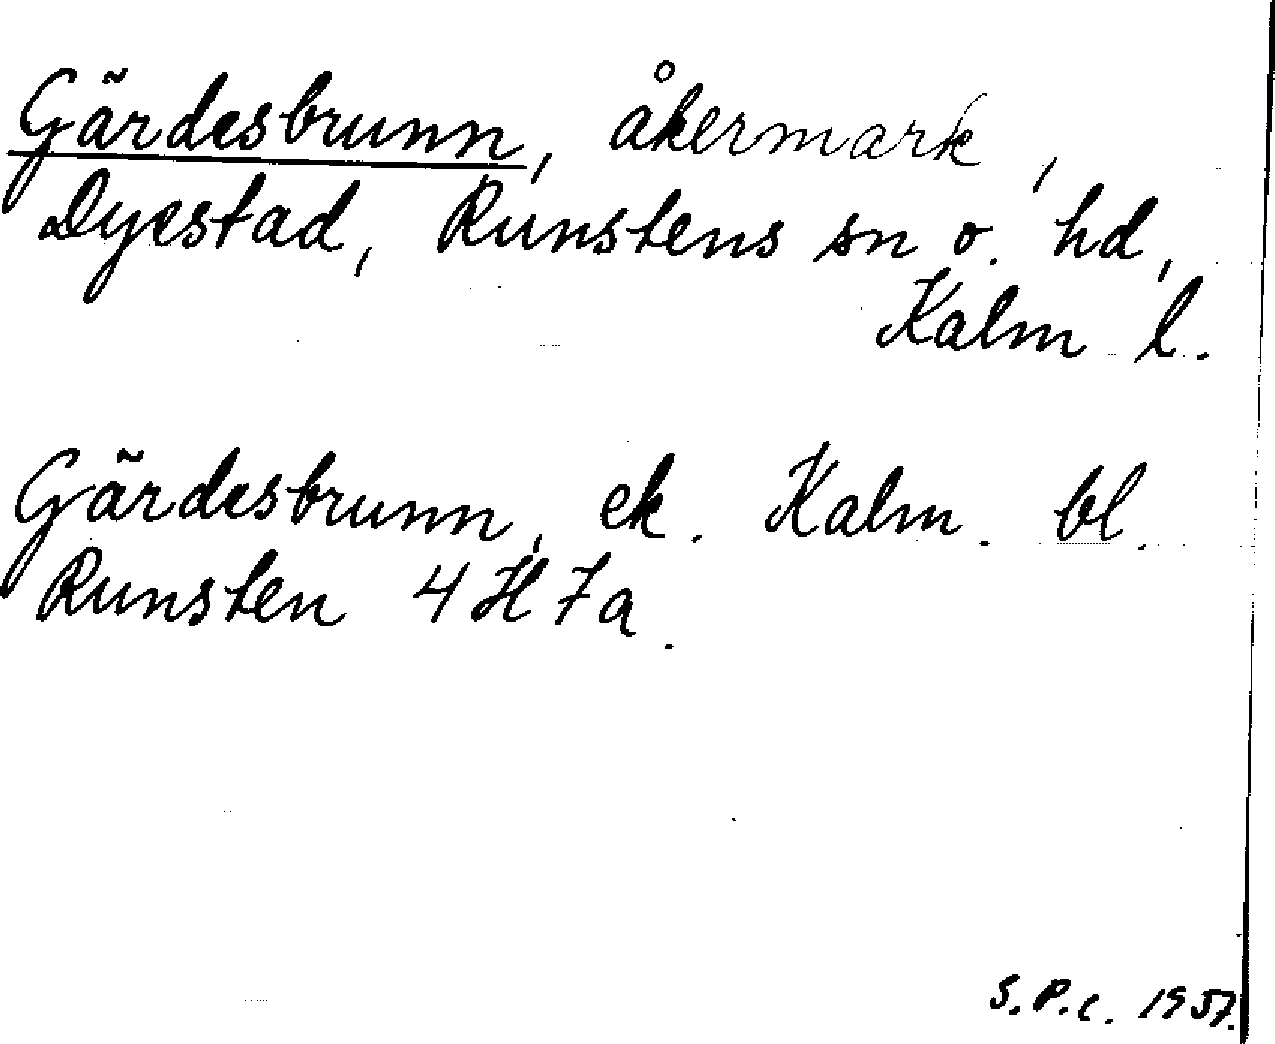 Gärdesbrunn, åkermark,
Dyestad, Runstens sn o. hd,
Kalm l.
Gärdesbrunn, ek. Kalm. bl.
Runsten 4H7a.
S.P.C. 1957.